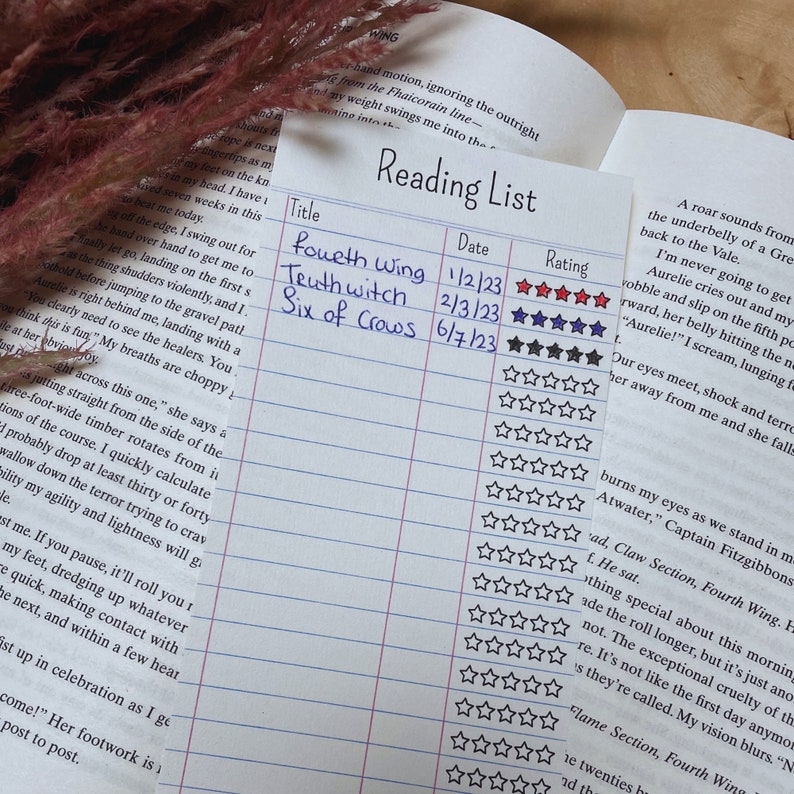 WING
-hand motion, ignoring the outright
from the Fhaicorain line—
my weight swings me into the
Reading List
Title Date Rating
Fourth Wing 1/2/23
Truthwitch 2/3/23
Six of Crows 6/7/23
fingertips as my
my feet on the
in my head. I have
seven weeks in this
to beat me today.
hand over hand to get me to
off the edge, I swing out for
finally let go, landing on the first s
as the thing shudders violently, and I
foothold before jumping to the gravel path
Aurelie is right behind me, landing with a
"You clearly need to see the healers. You
you think this is fun." My breaths are choppy
at her obvious joy.
across this one," she says a
jutting straight from the side of the
three-foot-wide timber rotates from
tions of the course. I quickly calculate
d probably drop at least thirty or forty
wallow down the terror trying to craw
bility my agility and lightness will g
le.
ust me. If you pause, it'll roll you
my feet, dredging up whatever
re quick, making contact with
the next, and within a few hear
fist up in celebration as I ge
come!" Her footwork is
post to post.
A roar sounds from
the underbelly of a Gre
back to the Vale.
I'm never going to get
Aurelie cries out and my
wobble and slip on the fifth po
rward, her belly hitting the ne
"Aurelie!" I scream, lunging fo
Our eyes meet, shock and terro
her away from me and she falls
burns my eyes as we stand in mo
Atwater," Captain Fitzgibbons
ad, Claw Section, Fourth Wing. H
f. He sat.
othing special about this morning
ade the roll longer, but it's just ano
not. The exceptional cruelty of th
re. It's not like the first day anymo
s they're called. My vision blurs. "N
Flame Section, Fourth Wing.
he twenties by
d the